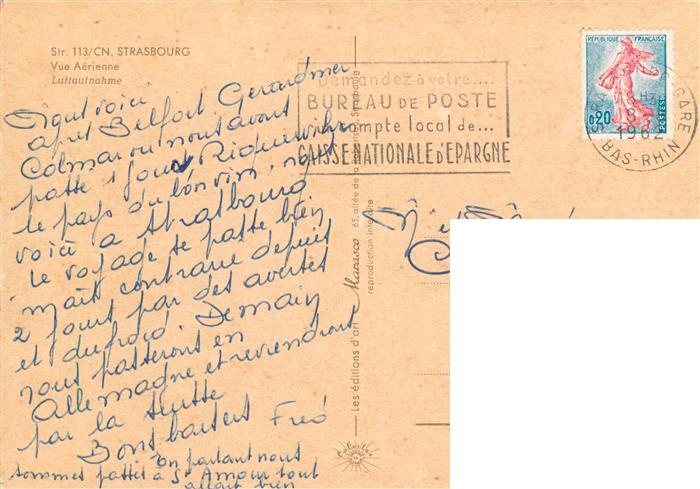 Str. 113/CN. STRASBOURG
Vue Aérienne
Luftaufnahme
voici
après Belfort Gerardmer
Colmar ou nous avons
passé 1 jour Riquewihr
le pays du bon vin, nous
voici à Strasbourg
le voyage se passe bien
mais contrarié depuis
2 jours par des averses
et du froid Demain
nous passerons en
Allemagne et reviendrons
par la suisse
Bons baisers Fred
En partant nous
sommes passés à St Amour tout
allait bien
Les éditions d'art Marasco 65, allée de la Robertsau, Strasbourg
reproduction interdite
Demandez à votre....
BUREAU DE POSTE
compte local de...
CAISSE NATIONALE d'EPARGNE
REPUBLIQUE FRANÇAISE
0,20
POSTES
GARE
8
1962
BAS-RHIN
M et